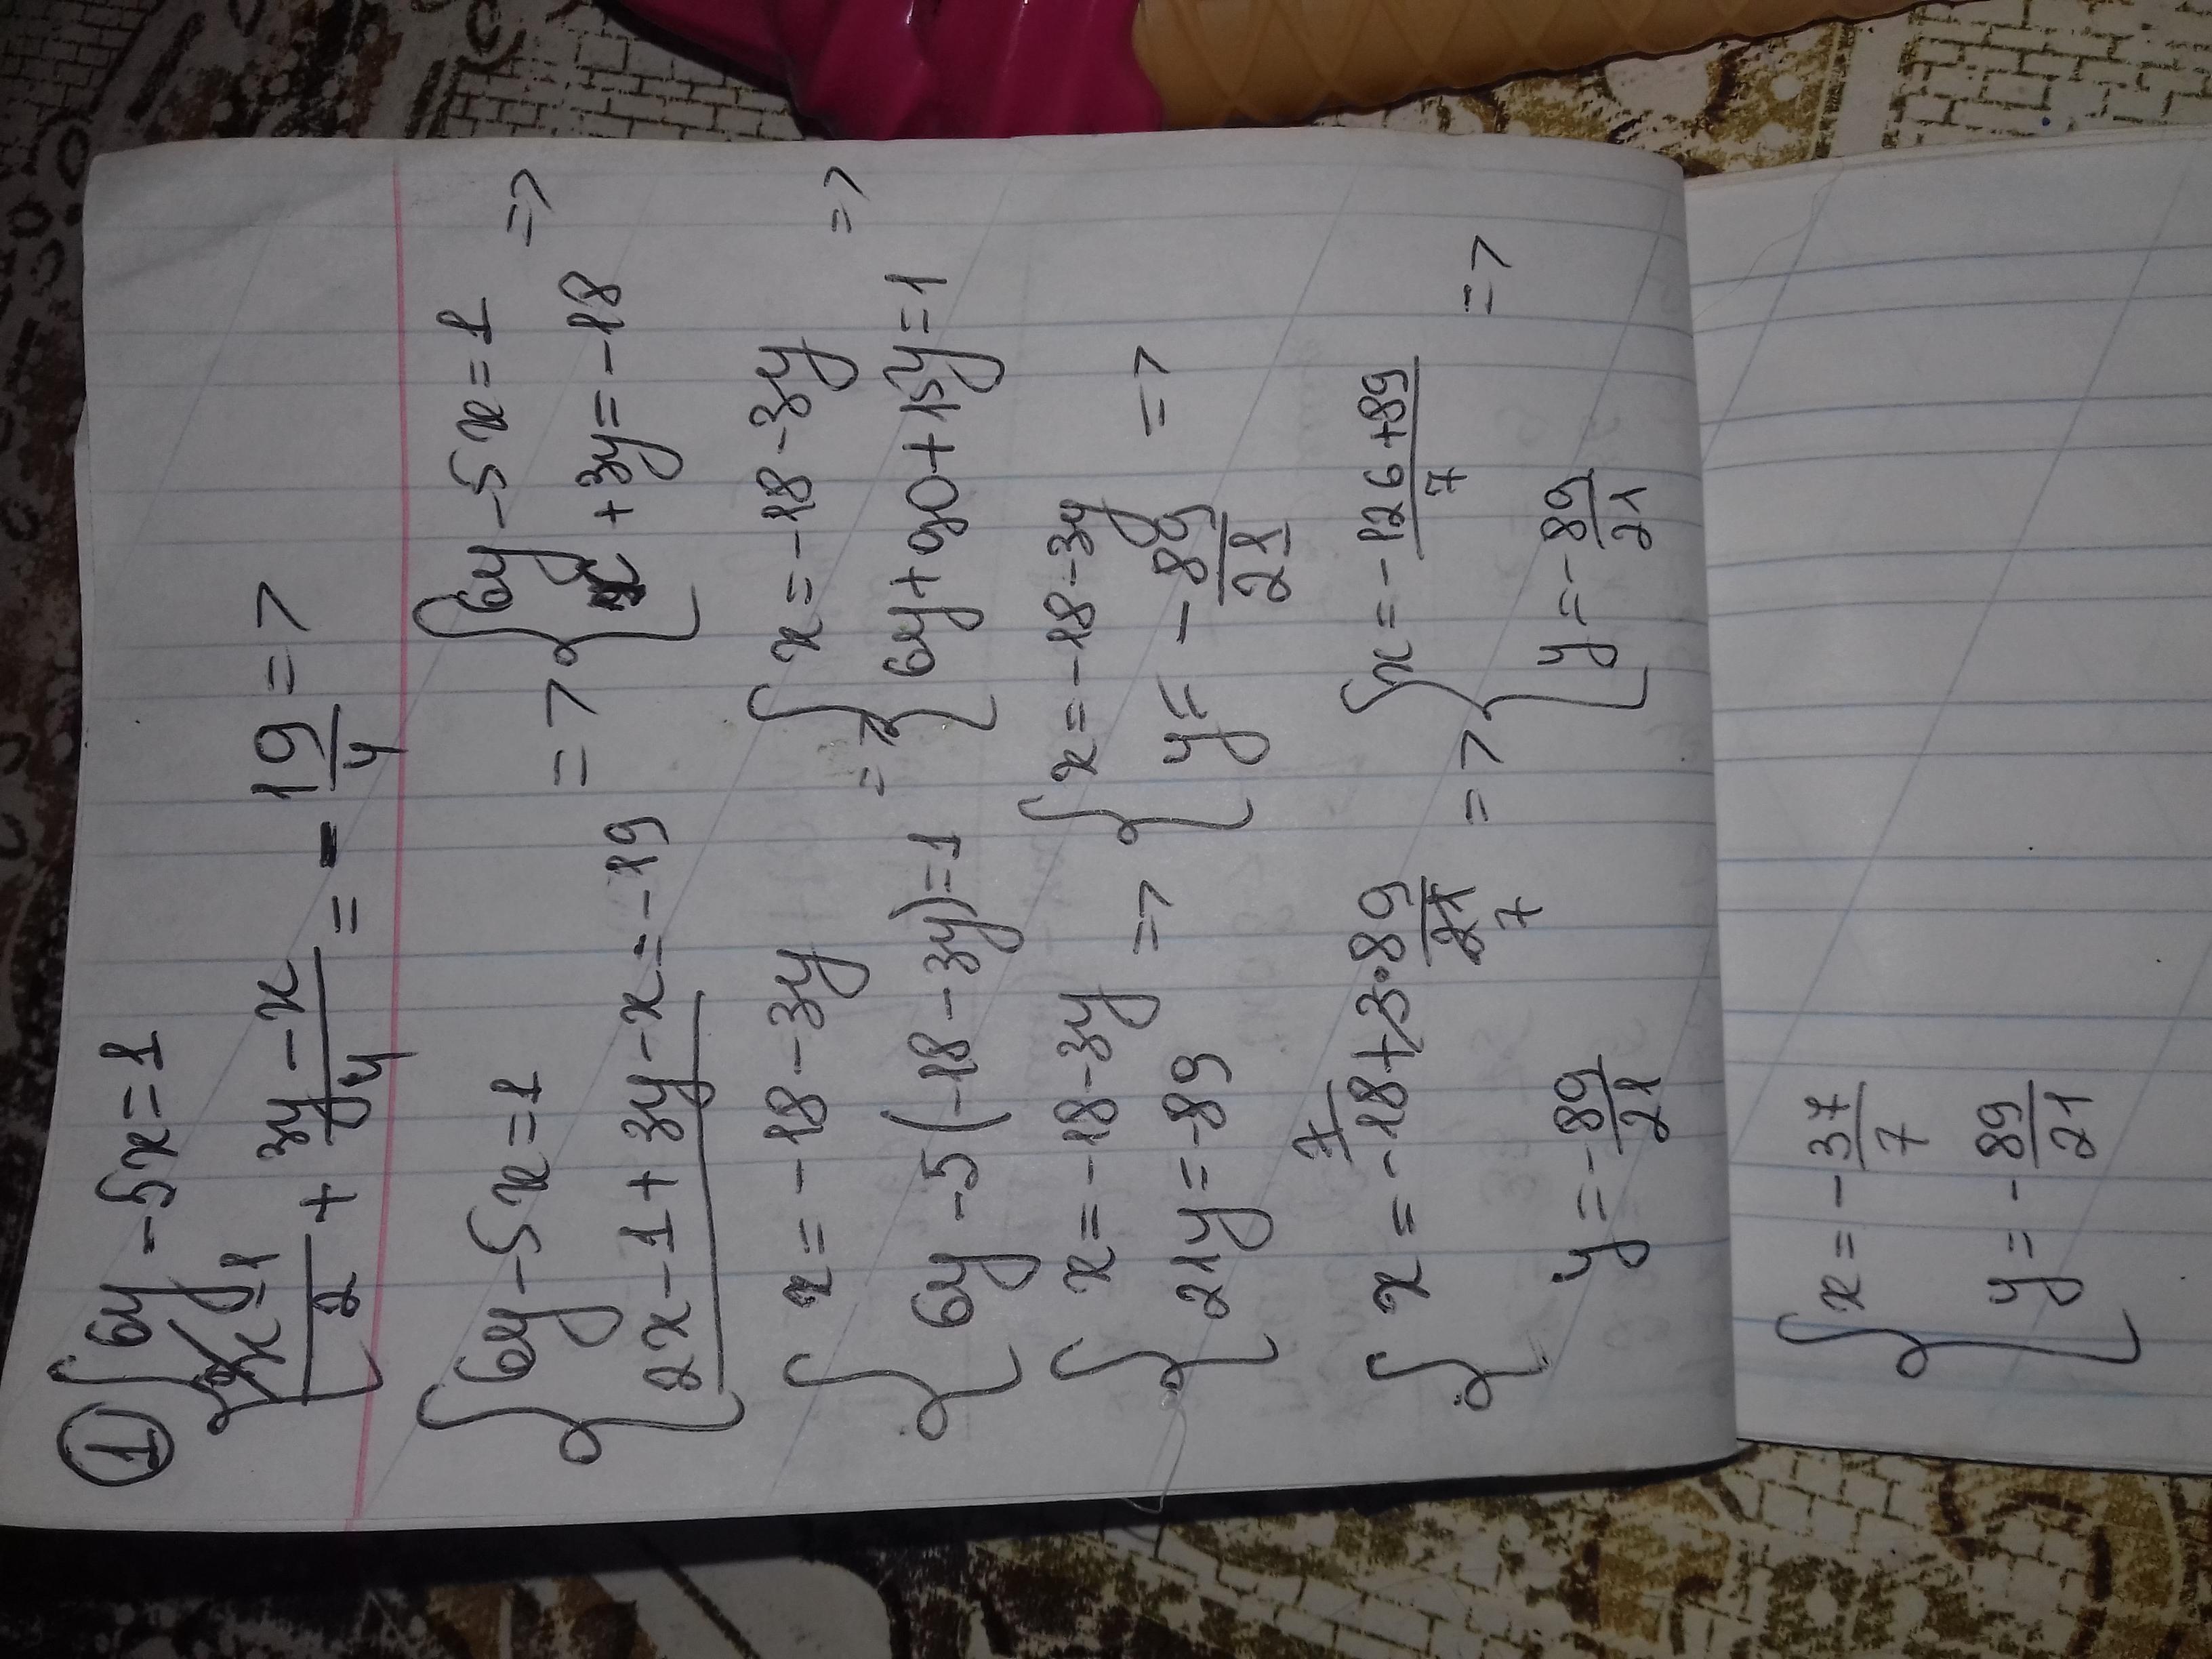 ① { 6y - 5x = 1
x - 1 / 2 + 3y - x / 4 = - 19 / 4 =>
{ 6y - 5x = 1
2x - 1 + 3y - x = -19 => { 6y - 5x = 1
x + 3y = -18 =>
{ x = -18 - 3y
6y - 5(-18 - 3y) = 1 => { x = -18 - 3y
6y + 90 + 15y = 1 =>
{ x = -18 - 3y
21y = -89 => { x = -18 - 3y
y = - 89 / 21 =>
{ x = -18 + 3 · 89 / 21 7
y = - 89 / 21 => { x = - 126 + 89 / 7
y = - 89 / 21 =>
{ x = - 37 / 7
y = - 89 / 21